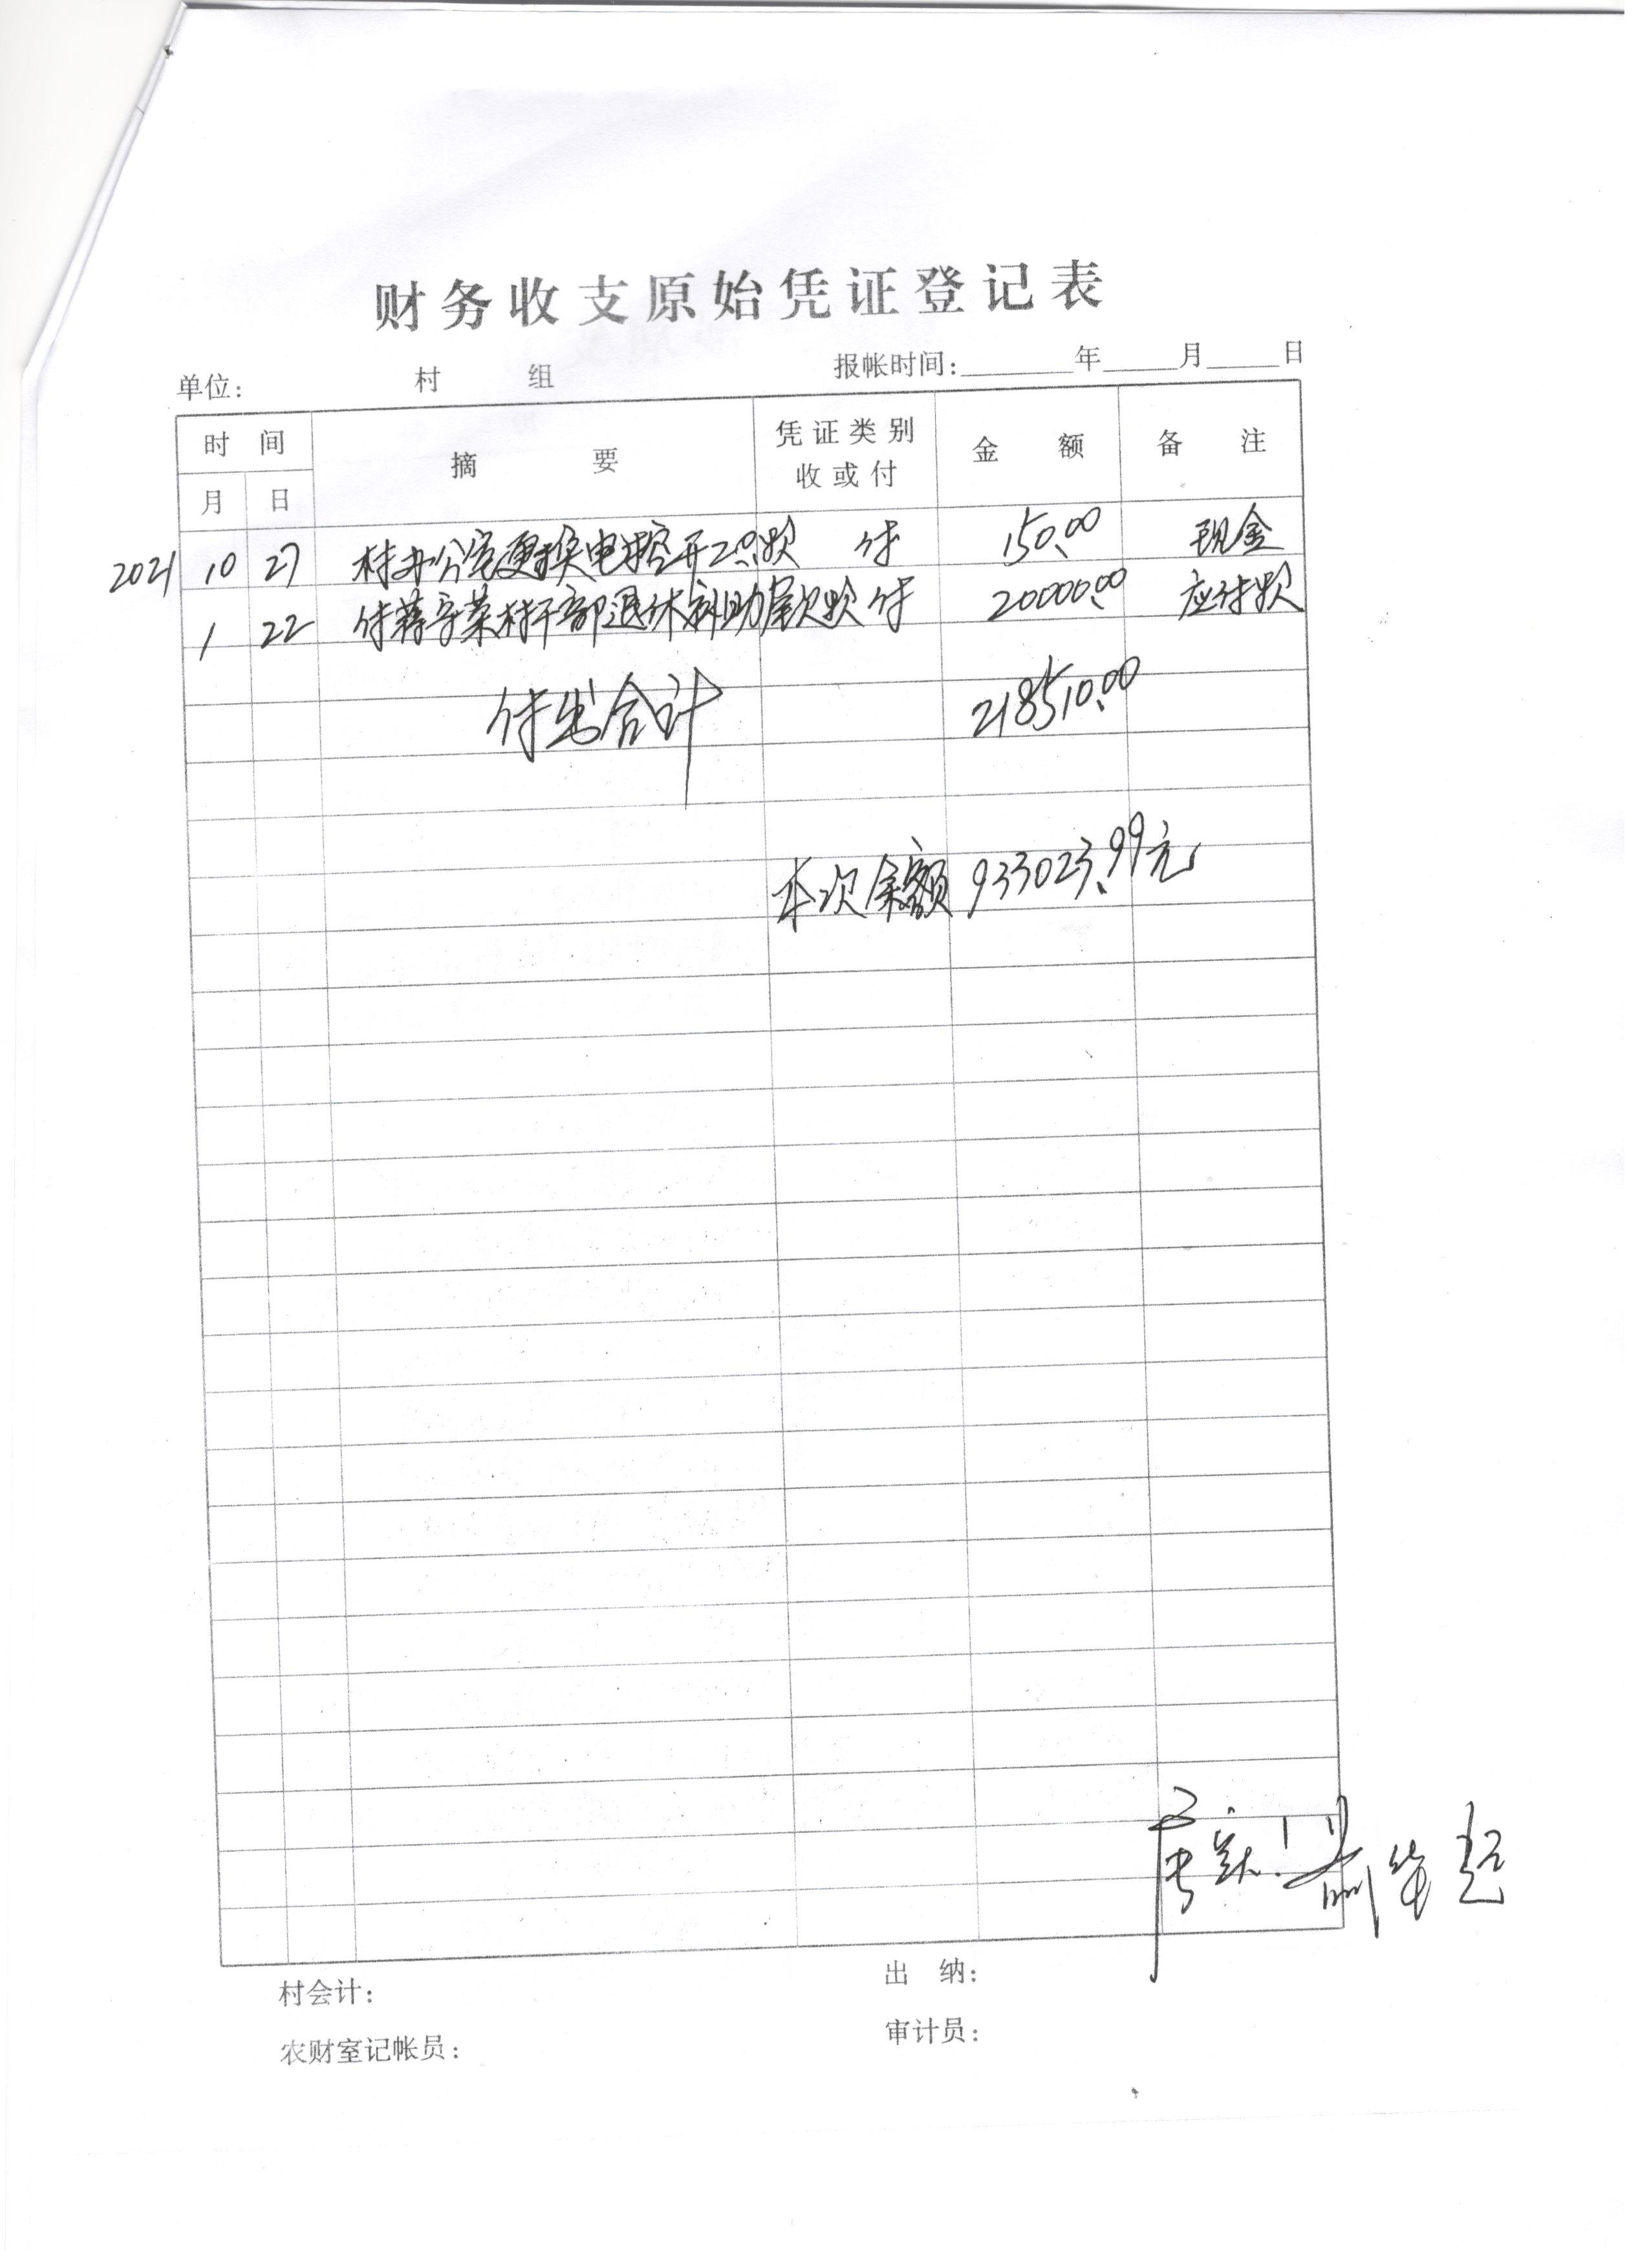 财务收支原始凭证登记表
单位： 村 组 报帐时间：____年____月____日
时 间 摘 要 凭证类别 收或付 金 额 备 注
月 日
2021 10 27 村办公室更换电 空开 款 付 150.00 现金
1 22 付蒋 英村干部退休补助尾欠款 付 20000.00 应付款
付出合计 218510.00
本次余额 933023.99元
村会计： 出 纳：
农财室记帐员： 审计员：